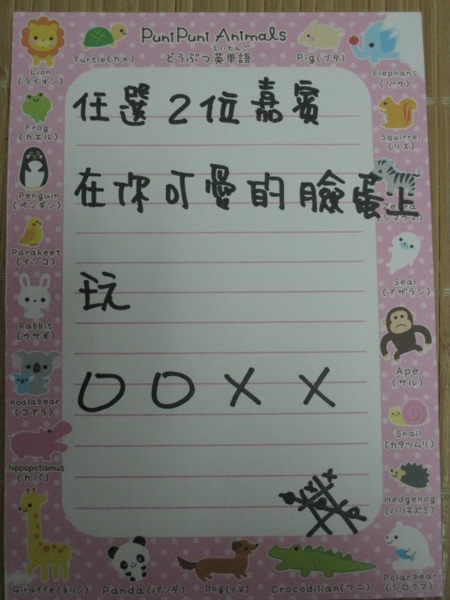 PuniPuni Animals
どうぶつ英単語
えいたんご
Lion
(ライオン)
Turtle(カメ)
Pig(ブタ)
Elephant
(ゾウ)
Frog
(カエル)
Squirrel
(リス)
任選2位嘉賓
Penguin
(ペンギン)
在你可愛的臉蛋上
Parakeet
(インコ)
Seal
(アザラシ)
玩
Rabbit
(ウサギ)
Ape
(サル)
OOXX
Koalabear
(コアラ)
Snail
(カタツムリ)
hippopotamus
(カバ)
Hedgehog
(ハリネズミ)
Giraffe(キリン)
Panda(パンダ)
Dog(イヌ)
Crocodilian(ワニ)
Polar bear
(シロクマ)